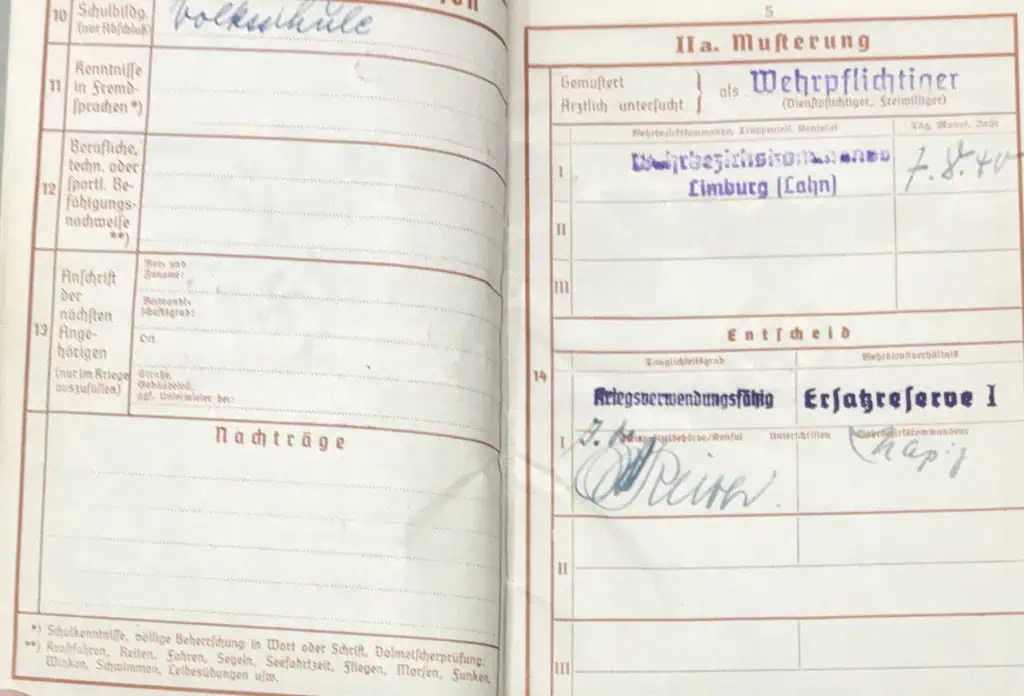 10 Schulbildg. (nur Abschluß)
Volksschule
11 Kenntnisse
in Fremd-
sprachen*)
12 Berufliche,
techn. oder
sportl. Be-
fähigungs-
nachweise
**)
13 Anschrift
der
nächsten
Ange-
hörigen
(nur im Kriege
auszufüllen)
Vor- und
Zuname:
Verwandt-
schaftsgrad:
Ort
Straße,
Gebäudeteil,
ggf. Untermieter bei:
Nachträge
*) Schulkenntnisse, völlige Beherrschung in Wort oder Schrift, Dolmetscherprüfung.
**) Kraftfahren, Reiten, Fahren, Segeln, Seefahrtzeit, Fliegen, Morsen, Funken,
Winken, Schwimmen, Leibesübungen usw.
5
IIa. Musterung
Gemustert
Ärztlich untersucht
} als Wehrpflichtiger
(Dienstpflichtiger, Freiwilliger)
Wehrbezirkskommando, Truppenteil, Konsulat
Tag, Monat, Jahr
I Wehrbezirkskommando
Limburg (Lahn)
7.8.40
II
III
Entscheid
14
Tauglichkeitsgrad
Wehrdienstverhältnis
Kriegsverwendungsfähig
Ersatzreserve I
I
Unterschriften
II
III